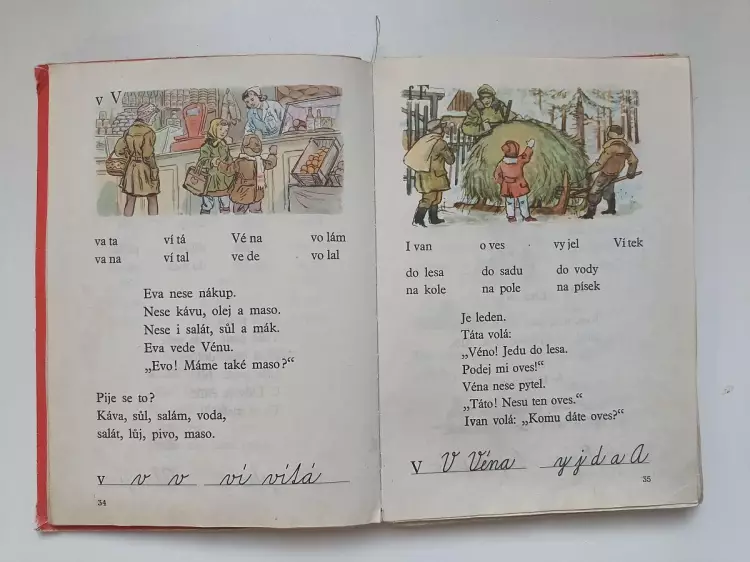 v V
va ta ví tá Vé na vo lám
va na ví tal ve de vo lal
Eva nese nákup.
Nese kávu, olej a maso.
Nese i salát, sůl a mák.
Eva vede Vénu.
„Evo! Máme také maso?“
Pije se to?
Káva, sůl, salám, voda,
salát, lůj, pivo, maso.
v v v ví vítá
34
f F
I van o ves vy jel Ví tek
do lesa do sadu do vody
na kole na pole na písek
Je leden.
Táta volá:
„Véno! Jedu do lesa.
Podej mi oves!“
Véna nese pytel.
„Táto! Nesu ten oves.“
Ivan volá: „Komu dáte oves?“
V V Véna y j d a A
35